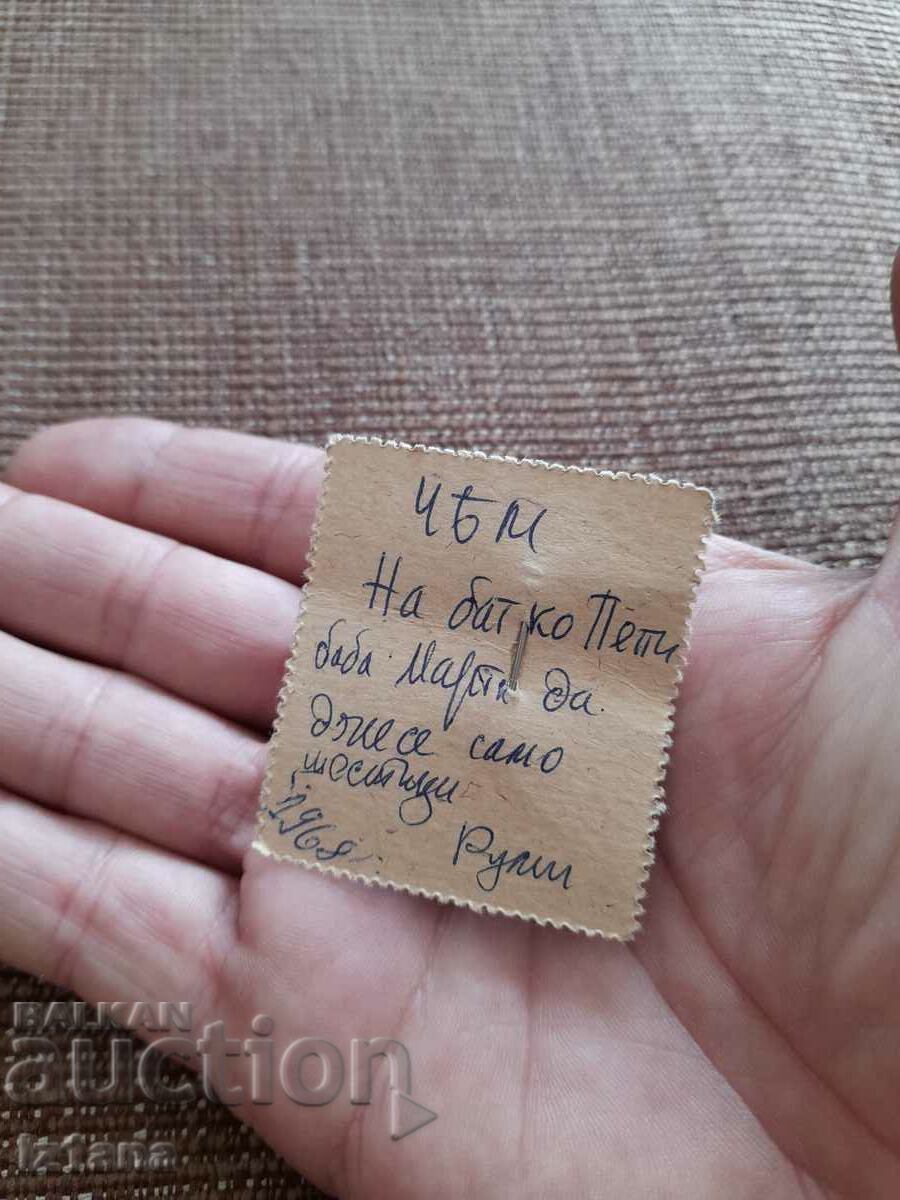 ЧБМ
На батко Пепи
баба Марта да
донесе само
шестици
1968 г.
Руми
BALKAN
auction
Iztana